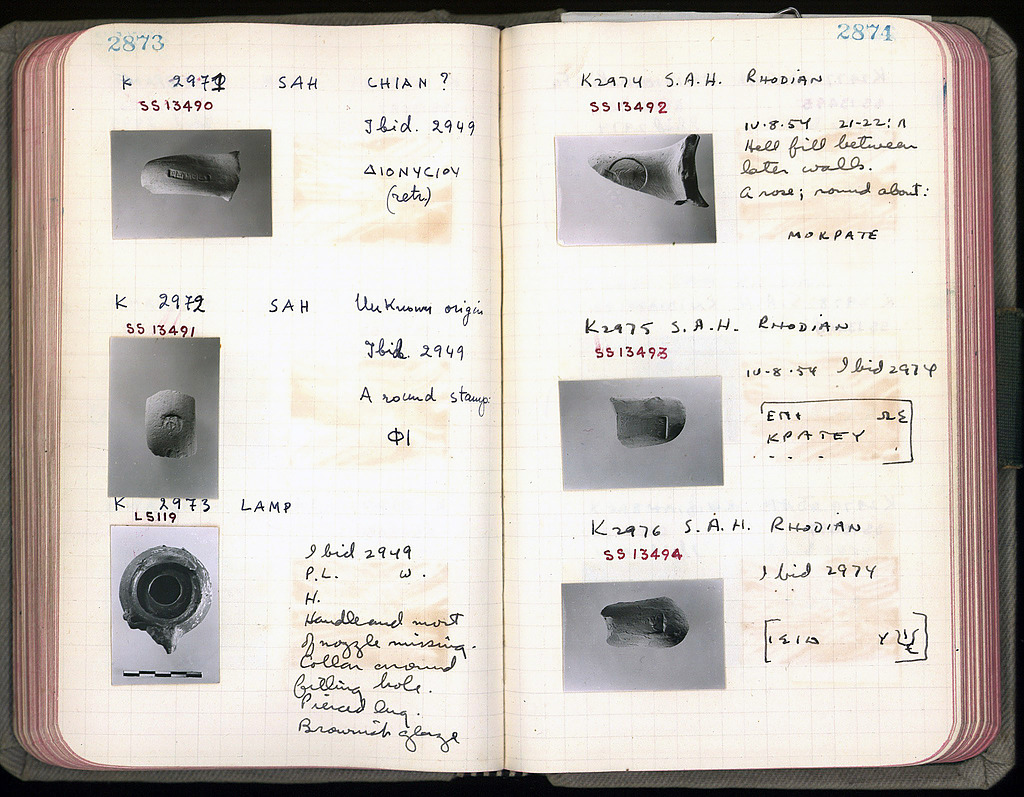 2873
K 2971 SAH CHIAN ?
SS 13490
Ibid. 2949
ΔΙΟΝΥCΙΟΥ
(retr.)
K 2972 SAH Unknown origin
SS 13491
Ibid. 2949
A round stamp:
ΦΙ
K 2973 LAMP
L5119
Ibid 2949
P.L. W.
H.
Handle and most
of nozzle missing.
Collar around
filling hole.
Pierced lug.
Brownish glaze
2874
K2974 S.A.H. RHODIAN
SS 13492
10.8.54 21-22:Λ
Hell fill between
later walls.
A rose; round about:
ΜΟΚΡΑΤΕ
K2975 S.A.H. RHODIAN
SS 13493
10.8.54 Ibid 2974
ΕΠΙ
ΚΡΑΤΕΥ
. . . .
K2976 S.A.H. RHODIAN
SS 13494
Ibid 2974